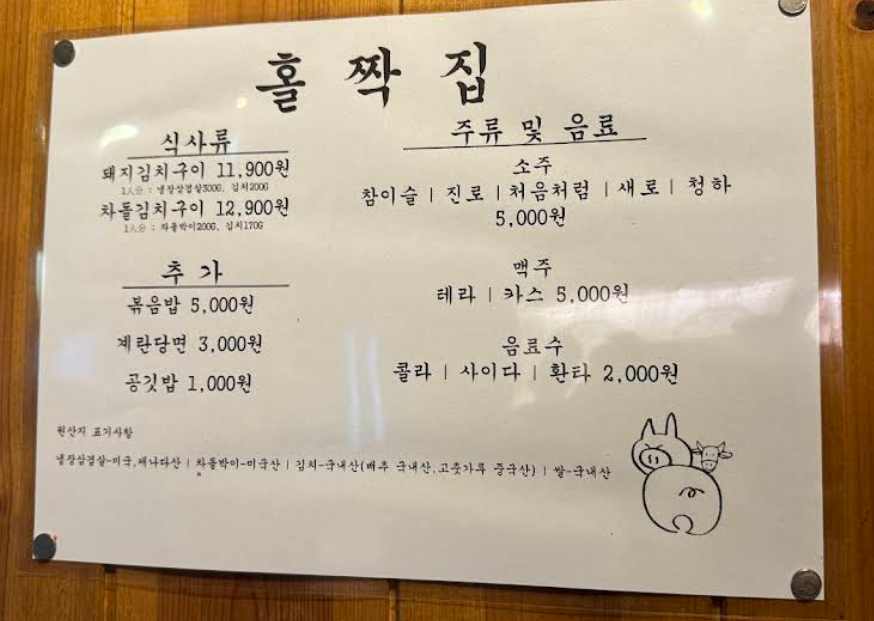 홀짝집
식사류
돼지김치구이 11,900원
1人分 : 냉장삼겹살300G, 김치200G
차돌김치구이 12,900원
1人分 : 차돌박이200G, 김치170G
추가
볶음밥 5,000원
계란당면 3,000원
공깃밥 1,000원
주류 및 음료
소주
참이슬 | 진로 | 처음처럼 | 새로 | 청하
5,000원
맥주
테라 | 카스 5,000원
음료수
콜라 | 사이다 | 환타 2,000원
원산지 표기사항
냉장삼겹살-미국,캐나다산 | 차돌박이-미국산 | 김치-국내산(배추 국내산,고춧가루 중국산) | 쌀-국내산